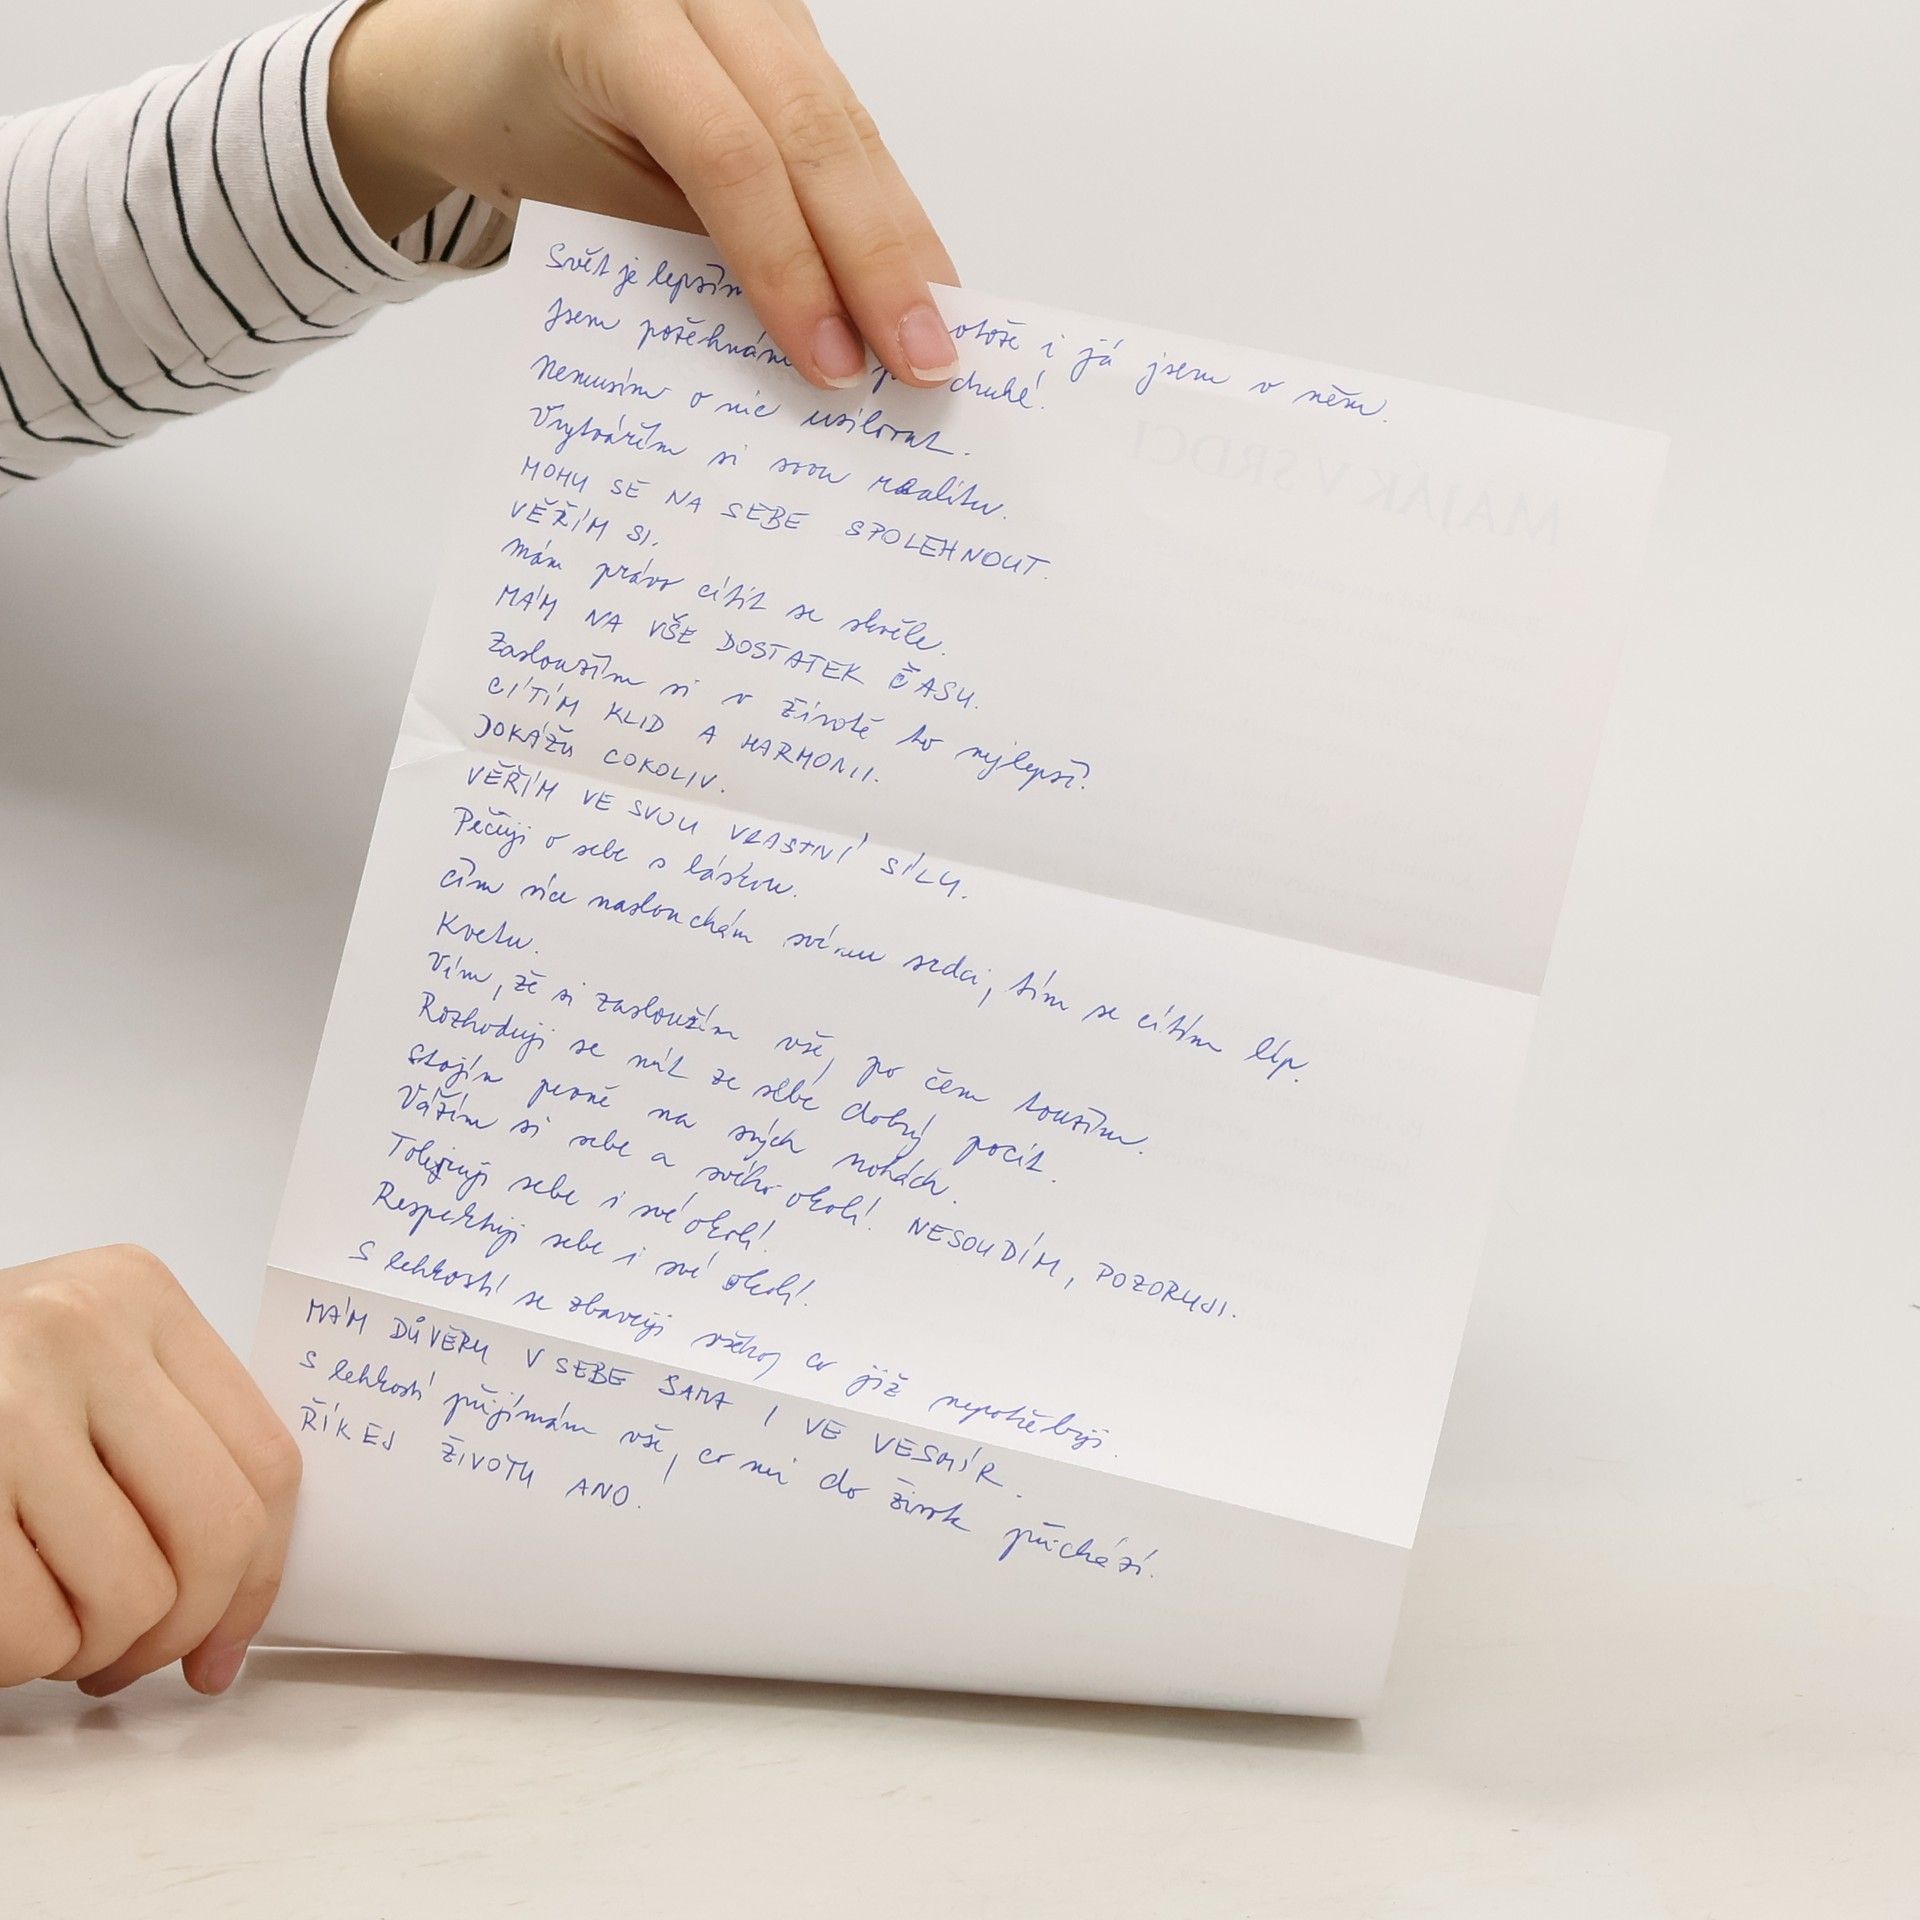 Svět je lepším otože i já jsem v něm.
Jsem požehnám druhé.
Nemusím o nic usilovat.
Vytvářím si svou realitu.
MOHU SE NA SEBE SPOLEHNOUT.
VĚŘÍM SI.
Mám právo cítit se skvěle.
MÁM NA VŠE DOSTATEK ČASU.
Zasloužím si v životě to nejlepší.
CÍTÍM KLID A HARMONII.
DOKÁŽU COKOLIV.
VĚŘÍM VE SVOU VLASTNÍ SÍLU.
Pečuji o sebe s láskou.
Čím více naslouchám svému srdci, tím se cítím líp.
Kvetu.
Vím, že si zasloužím vše, po čem toužím.
Rozhoduji se mít ze sebe dobrý pocit.
Stojím pevně na svých nohách.
Vážím si sebe a svého okolí. NESOUDÍM, POZORUJI.
Toleruji sebe i své okolí.
Respektuji sebe i své okolí.
S lehkostí se zbavuji všeho, co již nepotřebuji.
MÁM DŮVĚRU V SEBE SAMA I VE VESMÍR.
S lehkostí přijímám vše, co mi do života přichází.
ŘÍKEJ ŽIVOTU ANO.
MAJÁK V SRDCI